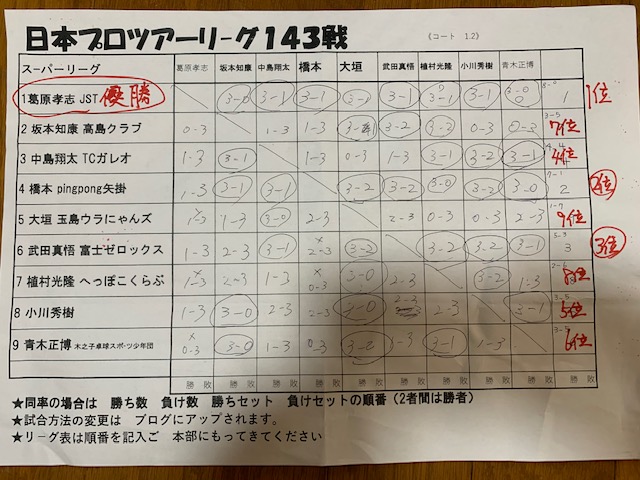 日本プロツアーリーグ143戦 《コート 1.2》
スーパーリーグ 葛原孝志 坂本知康 中島翔太 橋本 大垣 武田真悟 植村光隆 小川秀樹 青木正博
1葛原孝志 JST 優勝 3-0 3-1 3-1 3-1 3-1 3-1 1 1位
2 坂本知康 高島クラブ 0-3 1-3 1-3 3-2 0-3 0-3 7位
3 中島翔太 TCガレオ 1-3 3-1 1-3 0-3 1-3 3-1 3-2 3-1 4位
4 橋本 pingpong矢掛 1-3 3-1 3-1 3-2 3-2 3-0 3-2 3-0 7-1 2 2位
5 大垣 玉島ウラにゃんず 1-3 3-0 2-3 2-3 0-3 0-3 2-3 1-7 9位
6 武田真悟 富士ゼロックス 1-3 2-3 3-1 2-3 3-2 3-2 3-2 3-1 3 3位
7 植村光隆 へっぽこくらぶ 1-3 2-3 1-3 0-3 3-0 2-3 3-2 1-3 8位
8 小川秀樹 1-3 3-0 2-3 2-3 3-0 2-3 2-3 3-1 5位
9 青木正博 木之子卓球スポーツ少年団 0-3 3-0 1-3 0-3 3-2 3-1 1-3 6位
勝 敗 勝 敗 勝 敗 勝 敗 勝 敗 勝 敗 勝 敗 勝 敗 勝 敗 勝 敗
★同率の場合は 勝ち数 負け数 勝ちセット 負けセットの順番(2者間は勝者)
★試合方法の変更は ブログにアップされます。
★リーグ表は順番を記入ご 本部にもってきてください